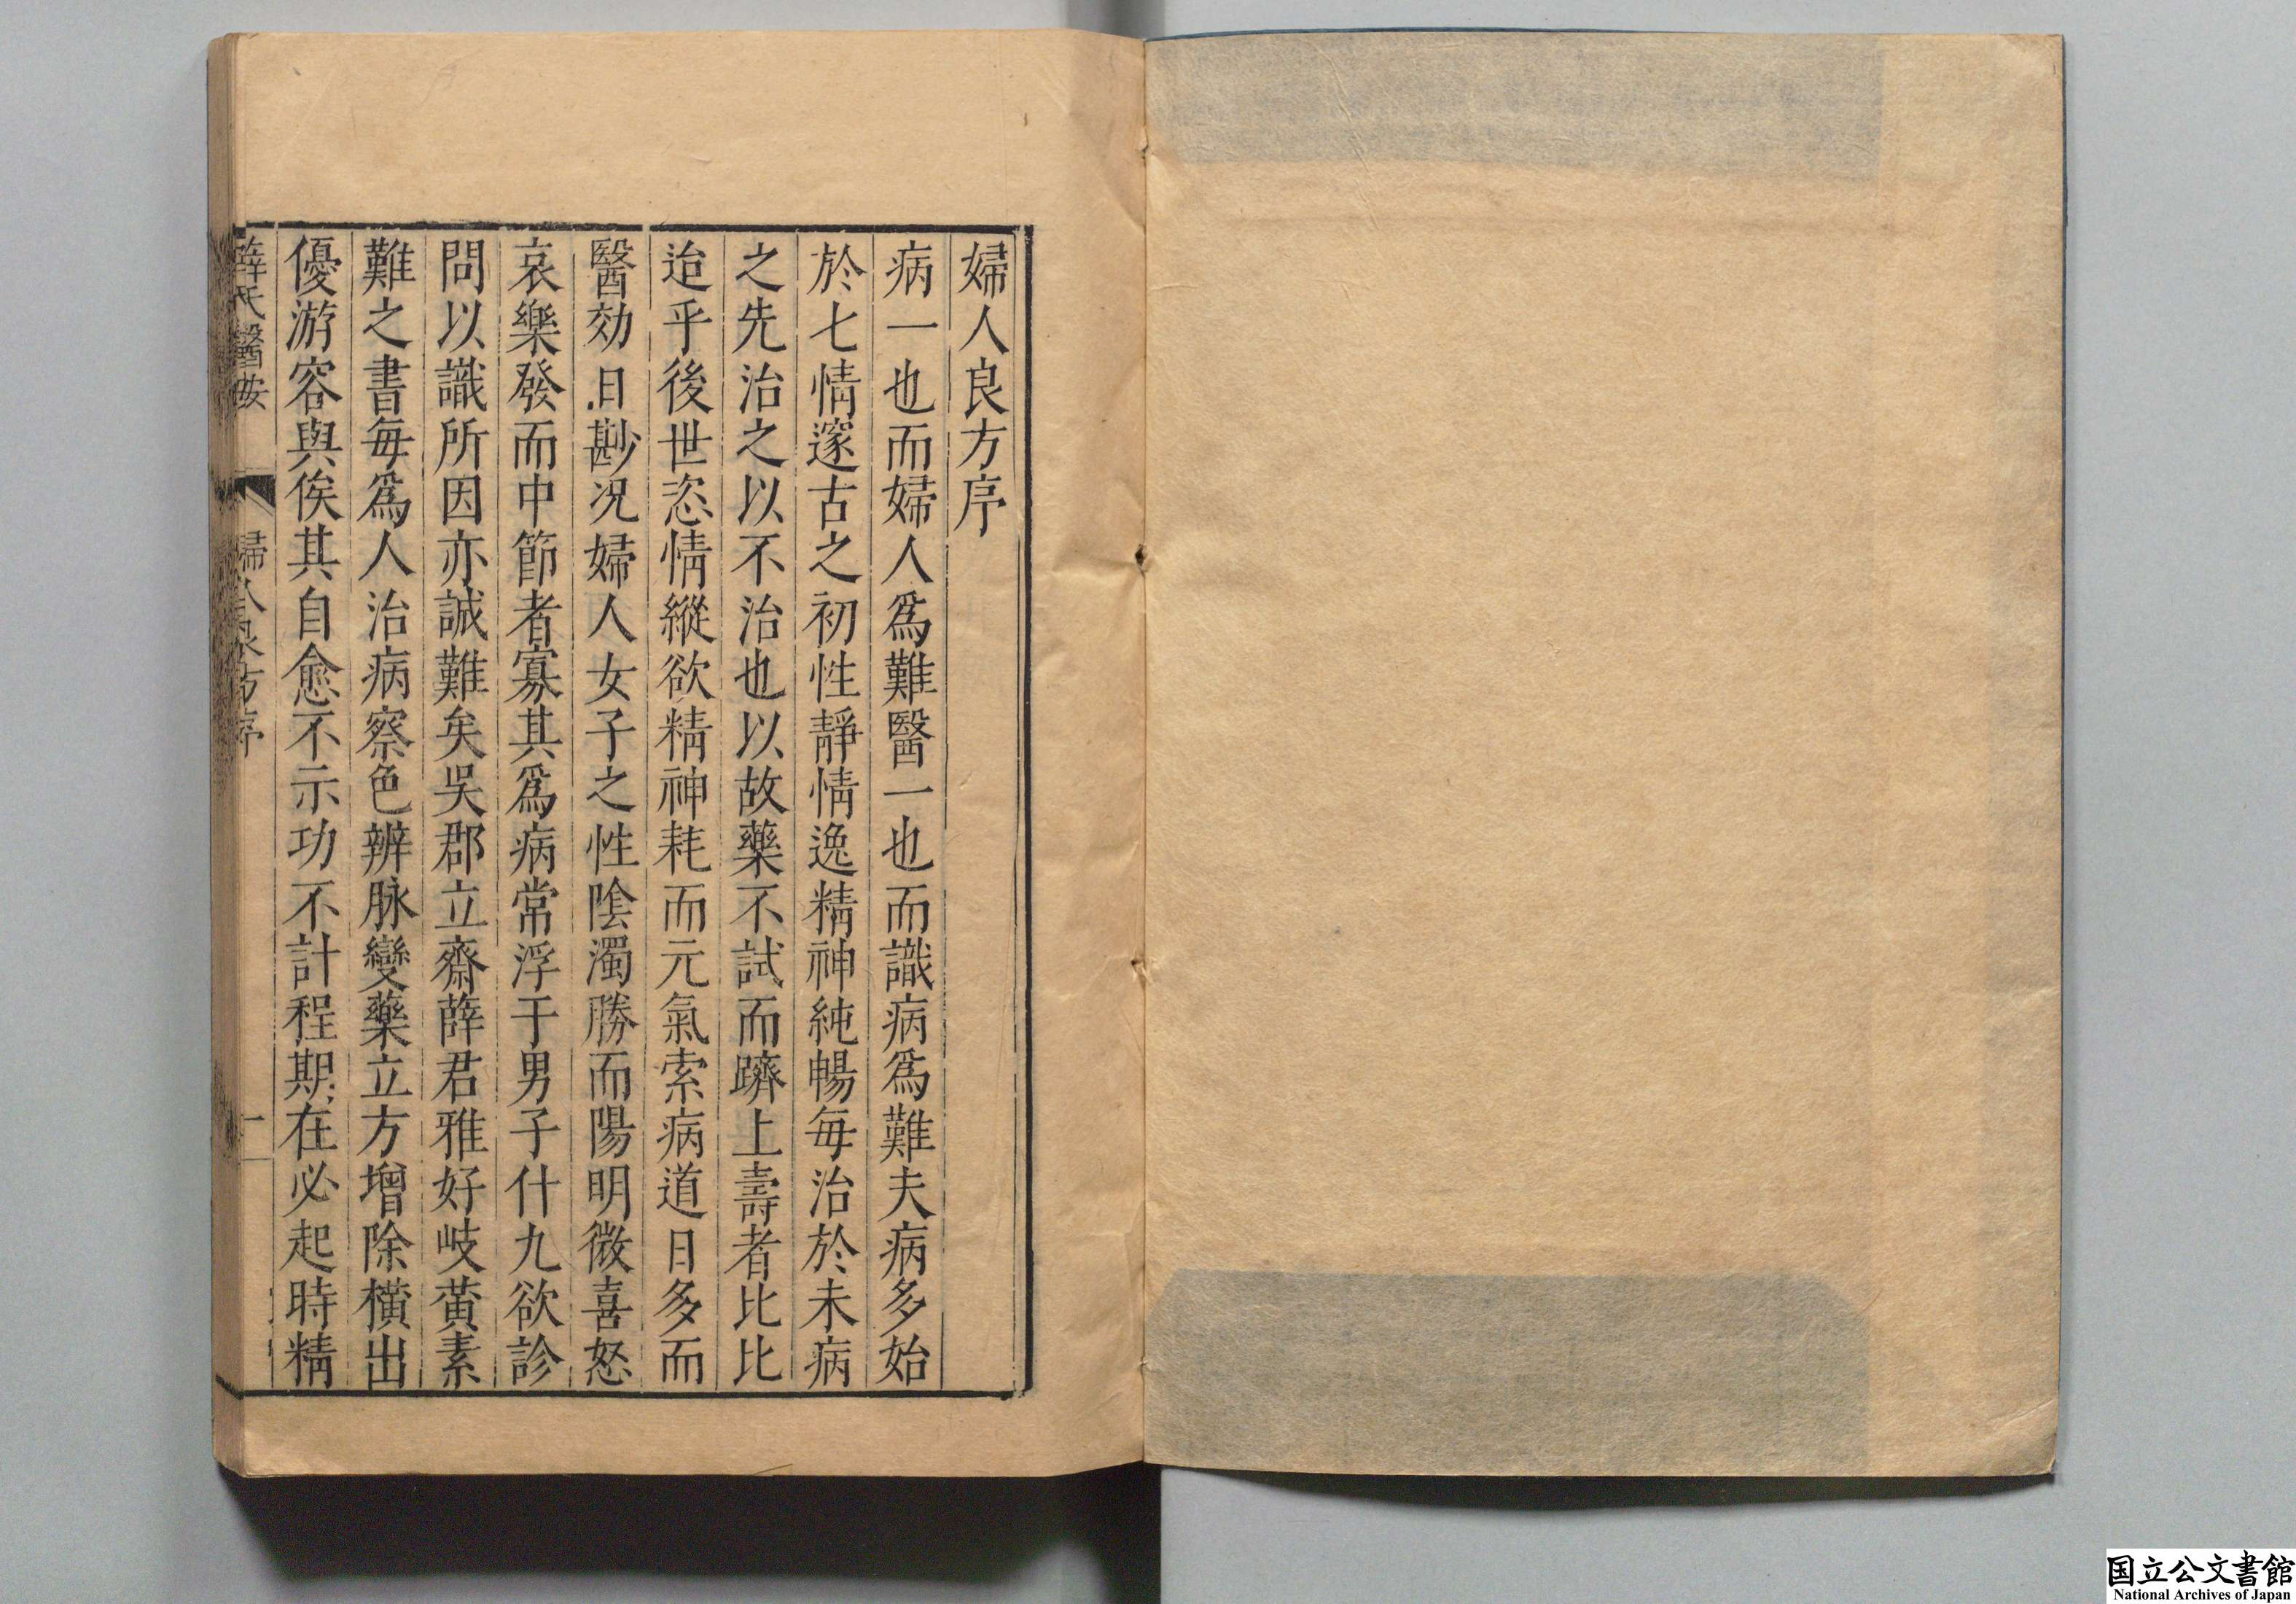 婦人良方序
病一也而婦人爲難醫一也而識病爲難夫病多始
於七情邃古之初性靜情逸精神純暢毎治於未病
之先治之以不治也以故藥不試而躋上壽者比比
迨乎後世恣情縱欲精神耗而元氣索病道日多而
醫効日尠况婦人女子之性陰濁勝而陽明微喜怒
哀樂發而中節者寡其爲病常浮于男子什九欲診
問以識所因亦誠難矣吳郡立齋薛君雅好岐黃素
難之書毎爲人治病察色辨脉變藥立方增除橫出
優游容與俟其自愈不示功不計程期在必起時精
薛氏醫按 婦人良方序 一
国立公文書館
National Archives of Japan